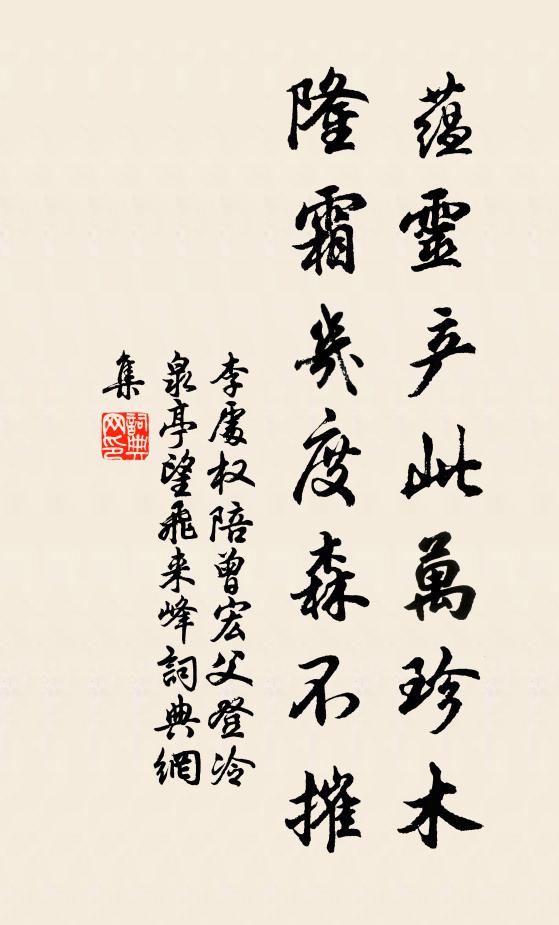 蕴靈产此萬珍木
隆霜幾度森不摧
李處权陪曾宏父登冷
泉亭望飛来峰詞典網
集
詞典网印